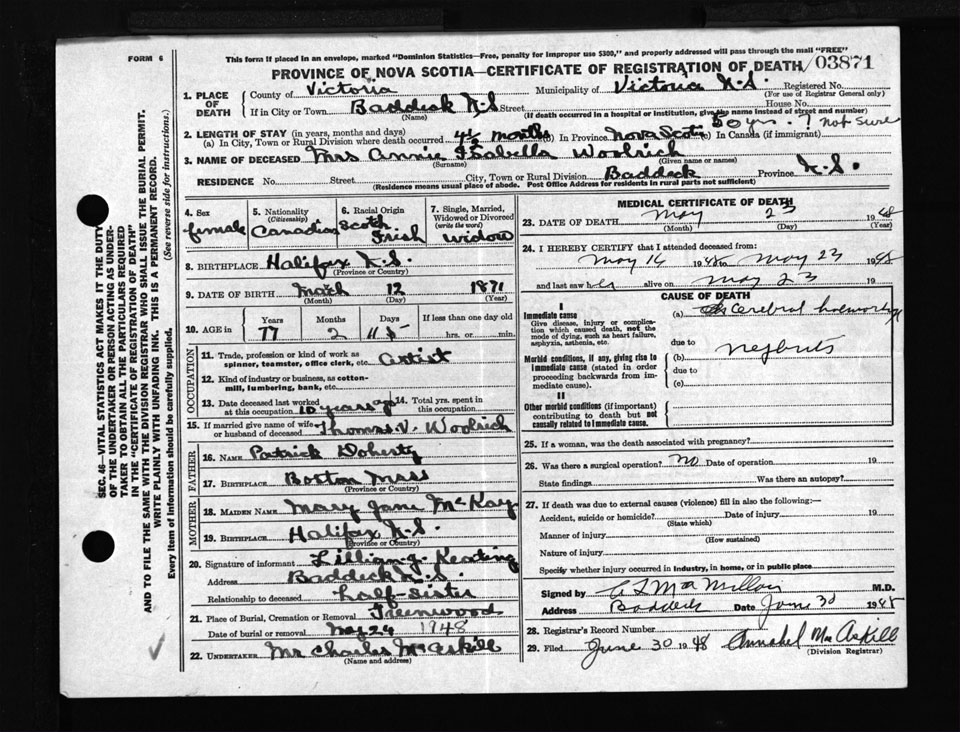 FORM 6
This form if placed in an envelope, marked "Dominion Statistics—Free, penalty for improper use $300," and properly addressed will pass through the mail "FREE"
PROVINCE OF NOVA SCOTIA—CERTIFICATE OF REGISTRATION OF DEATH 03871
1. PLACE OF DEATH
County of Victoria Municipality of Victoria N.S. Registered No.
(For use of Registrar General only)
If in City or Town Baddeck N.S Street House No.
(Name) (If death occurred in a hospital or institution, give its name instead of street and number)
50 yrs. ? Not sure
2. LENGTH OF STAY (in years, months and days)
(a) In City, Town or Rural Division where death occurred 4½ months (b) In Province Nova Scotia (c) In Canada (if immigrant)
3. NAME OF DECEASED Mrs Annie Isabella Woolrich
(Surname) (Given name or names)
RESIDENCE No. Street City, Town or Rural Division Baddeck Province N.S.
(Residence means usual place of abode. Post Office Address for residents in rural parts not sufficient)
4. Sex female
5. Nationality (Citizenship) Canadian
6. Racial Origin Scotch Irish
7. Single, Married, Widowed or Divorced (write the word) Widow
8. BIRTHPLACE Halifax N.S.
(Province or Country)
9. DATE OF BIRTH March 12 1871
(Month) (Day) (Year)
10. AGE in Years Months Days If less than one day old
77 2 11 hrs. or min.
OCCUPATION
11. Trade, profession or kind of work as spinner, teamster, office clerk, etc. Artist
12. Kind of industry or business, as cotton-mill, lumbering, bank, etc.
13. Date deceased last worked at this occupation 10 years ago
14. Total yrs. spent in this occupation
15. If married give name of wife or husband of deceased Thomas V. Woolrich
FATHER
16. NAME Patrick Doherty
17. BIRTHPLACE Boston Mass
(Province or Country)
MOTHER
18. MAIDEN NAME Mary Jane McKay
19. BIRTHPLACE Halifax N.S.
(Province or Country)
20. Signature of informant Lillian J. Keating
Address Baddeck N.S.
Relationship to deceased half-sister
21. Place of Burial, Cremation or Removal Greenwood
Date of burial or removal May 24 1948
22. UNDERTAKER Mr Charles McAskill
(Name and address)
MEDICAL CERTIFICATE OF DEATH
23. DATE OF DEATH May 23 1948
(Month) (Day) (Year)
24. I HEREBY CERTIFY that I attended deceased from:
May 16 1948 to May 23 1948
and last saw her alive on May 23 1948
CAUSE OF DEATH
I
Immediate cause
Give disease, injury or complication which caused death, not the mode of dying, such as heart failure, asphyxia, asthenia, etc.
(a) Cerebral
due to
Morbid conditions, if any, giving rise to immediate cause (stated in order proceeding backwards from immediate cause).
(b) Nephritis
due to
(c)
II
Other morbid conditions (if important) contributing to death but not causally related to immediate cause.
25. If a woman, was the death associated with pregnancy?
26. Was there a surgical operation? No Date of operation 19
State findings Was there an autopsy?
27. If death was due to external causes (violence) fill in also the following:—
Accident, suicide or homicide? Date of injury 19
(State which)
Manner of injury
(How sustained)
Nature of injury
Specify whether injury occurred in industry, in home, or in public place
Signed by C L MacMillan M.D.
Address Baddeck Date June 30 1948
28. Registrar's Record Number
29. Filed June 30 1948 Annabel MacAskill
(Division Registrar)
SEC. 46—VITAL STATISTICS ACT MAKES IT THE DUTY
OF THE UNDERTAKER OR PERSON ACTING AS UNDER-
TAKER TO OBTAIN ALL THE PARTICULARS REQUIRED
IN THE "CERTIFICATE OF REGISTRATION OF DEATH"
AND TO FILE THE SAME WITH THE DIVISION REGISTRAR WHO SHALL ISSUE THE BURIAL PERMIT.
WRITE PLAINLY WITH UNFADING INK. THIS IS A PERMANENT RECORD.
Every item of Information should be carefully supplied. (See reverse side for instructions.)